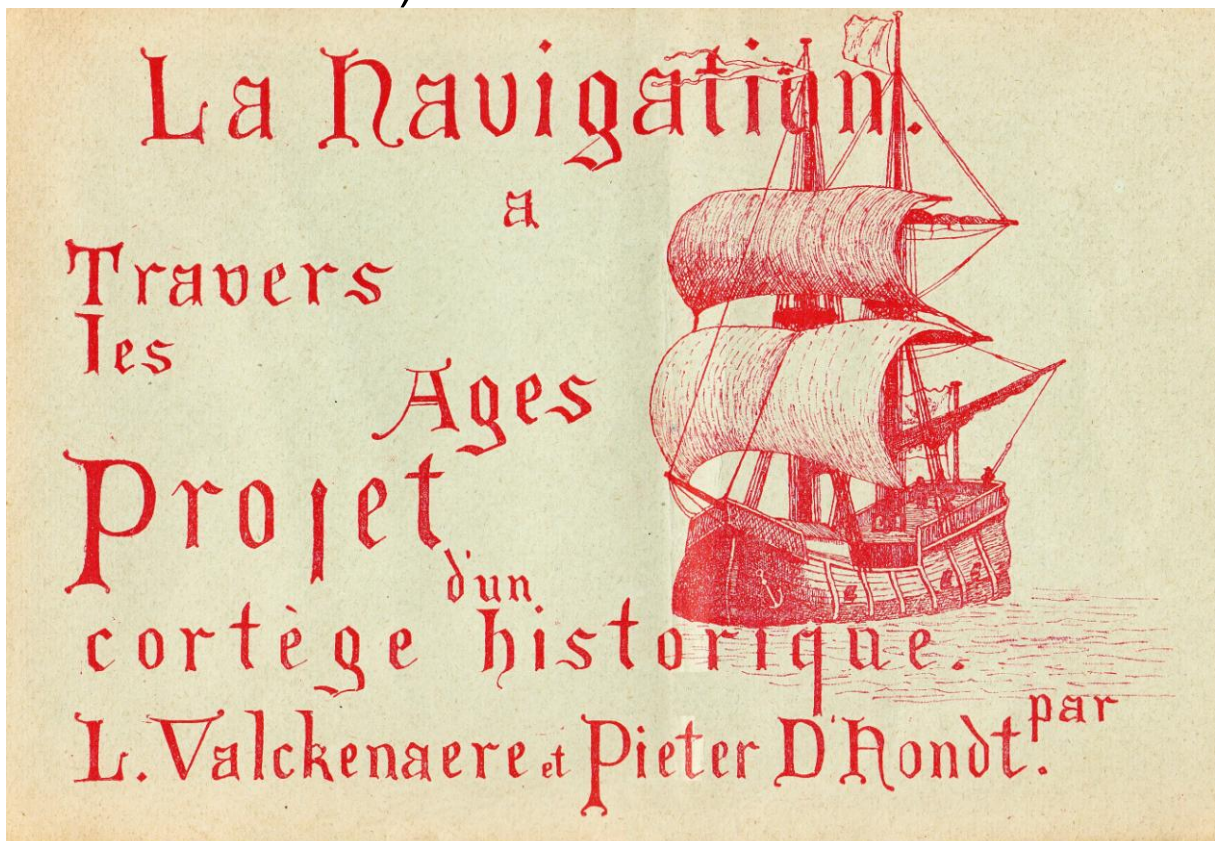 La Navigation.
a
Travers
les
Ages
Projet
d'un
cortège historique.
par
L. Valckenaere et Pieter D'Hondt.